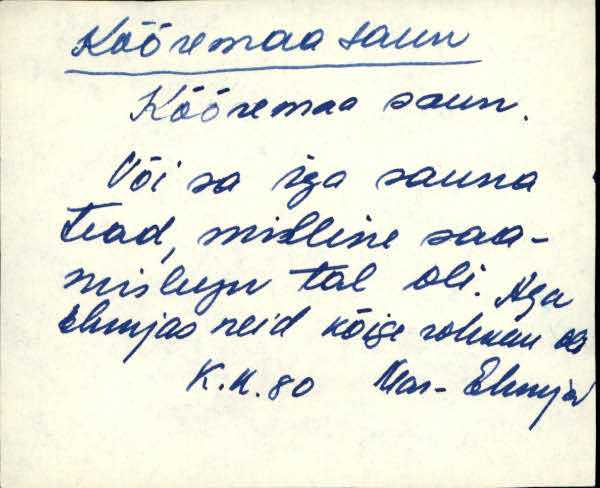 Kõõremaa saun
Kõõremaa saun.
Või sa iga sauna
tead, milline saa-
mislugu tal oli. Aga
Ehmjas neid kõige rohkem oli
K.K.80 Mar- Ehmja